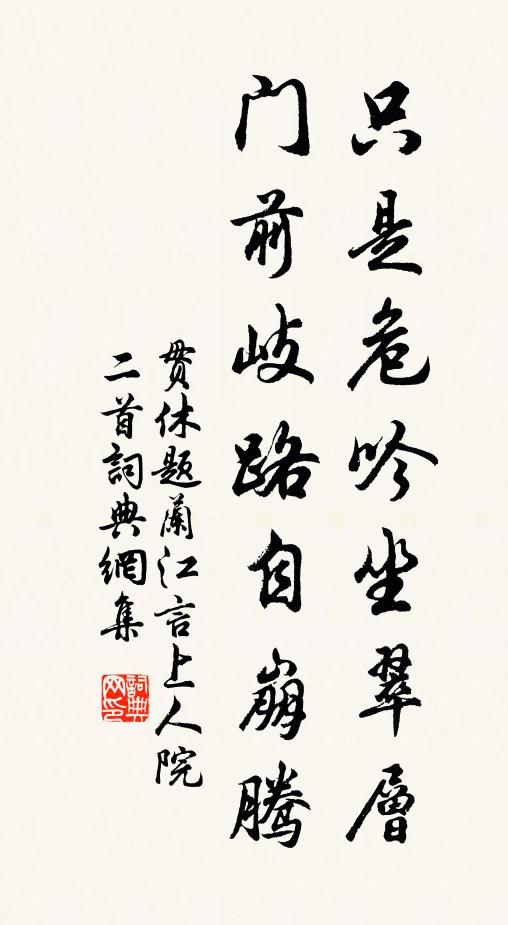 只是危吟坐翠層
门前岐路自崩腾
贯休题蘭江言上人院
二首詞典網集
詞典网印